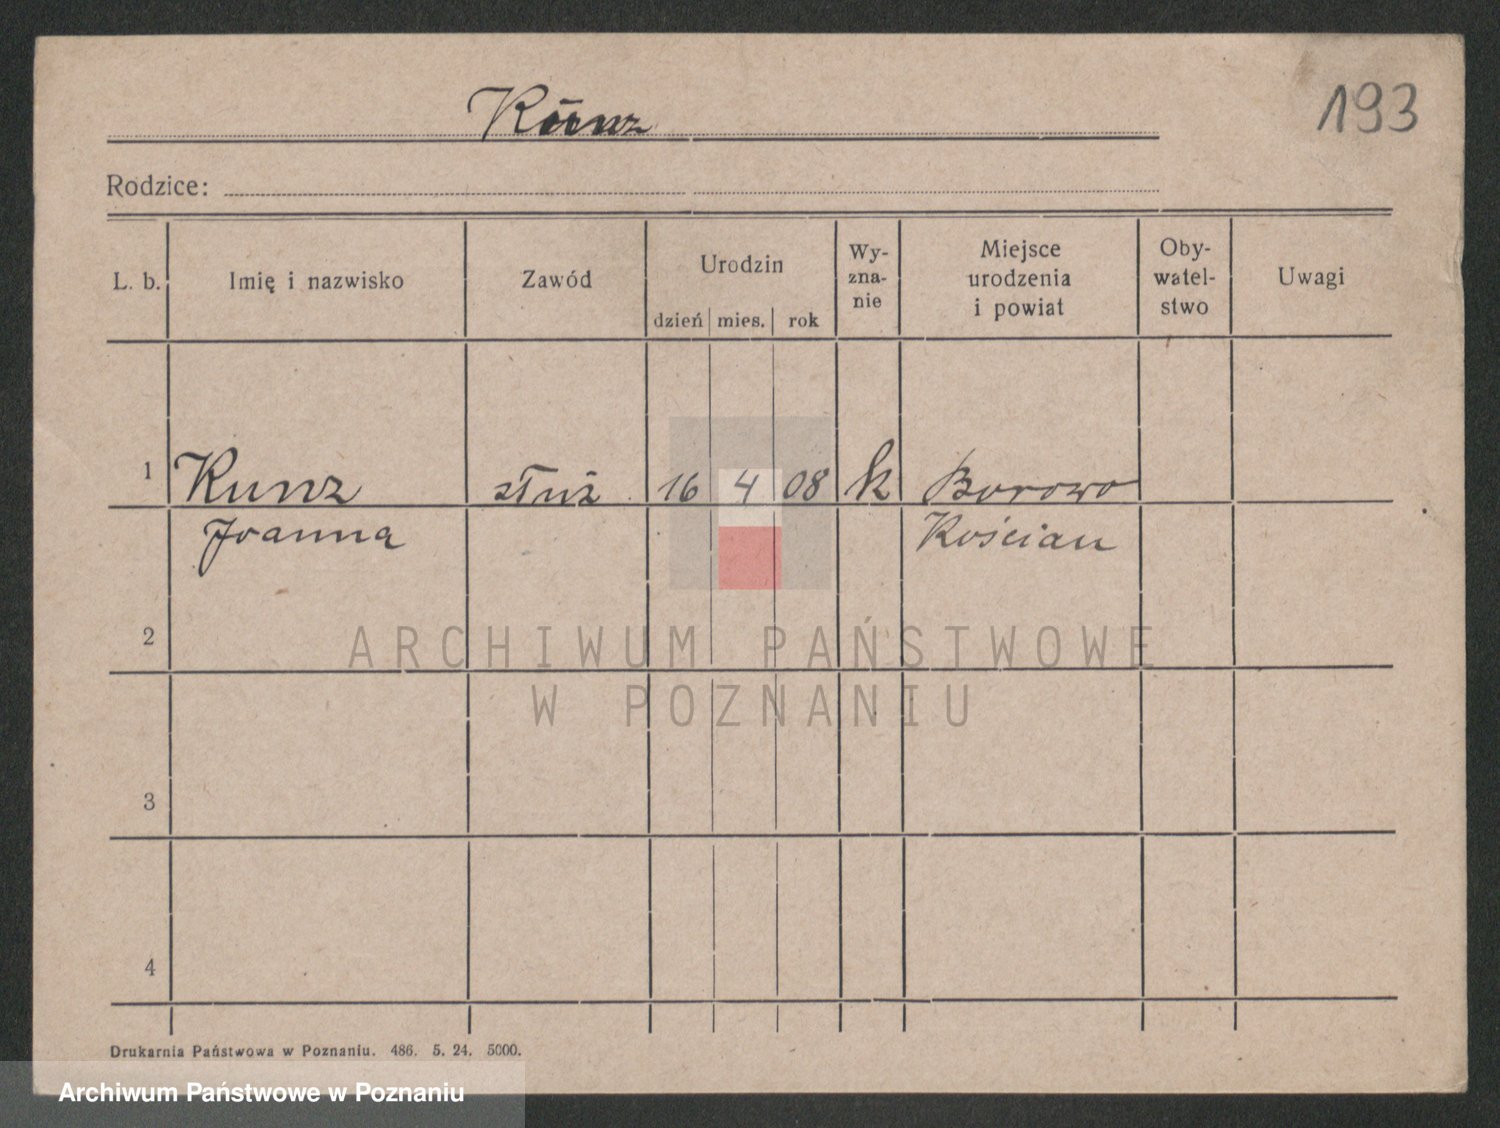 193
Rodzice:
L. b. Imię i nazwisko Zawód Urodzin dzień mies. rok Wy- zna- nie Miejsce urodzenia i powiat Oby- watel- stwo Uwagi
1 Kunz służ. 16 4 08 k Borowo
Joanna Kościan
2
ARCHIWUM PAŃSTWOWE
W POZNANIU
3
4
Drukarnia Państwowa w Poznaniu. 486. 5. 24. 5000.
Archiwum Państwowe w Poznaniu